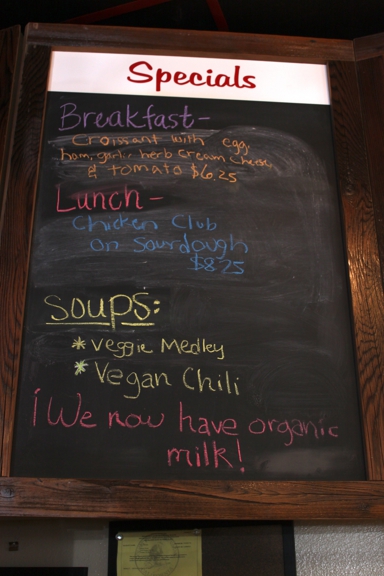 Specials
Breakfast-
Croissant with egg,
ham, garlic herb cream cheese,
& tomato $6.25
Lunch-
Chicken Club
on Sourdough
$8.25
Soups:
* Veggie Medley
* Vegan Chili
¡We now have organic
milk!